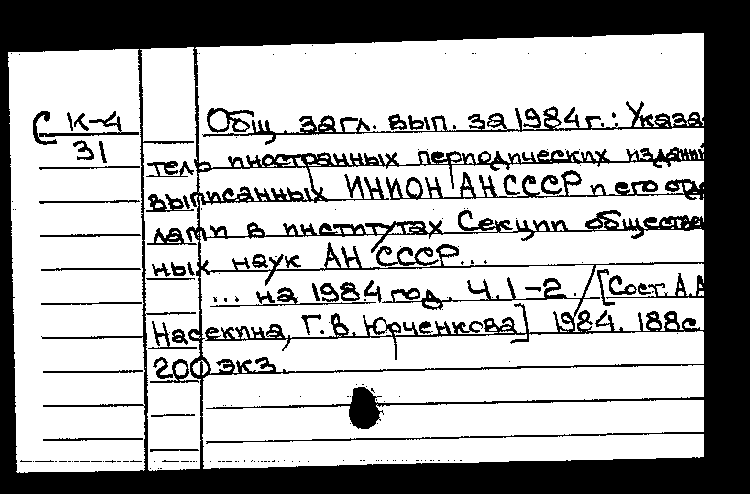 С К-4
31
Общ. загл. вып. за 1984 г.: Указа
тель иностранных периодических издани
выписанных ИНИОН АН СССР и его отде
лами в институтах Секции обществен
ных наук АН СССР...
... на 1984 год. Ч. 1-2. [Сост. А.А
Насекина, Г.В. Юрченкова] 1984. 188с
200 экз.